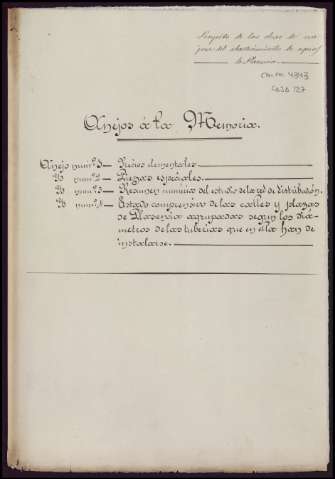 Proyecto de las obras de me-
jora del abastecimiento de aguas
de Plasencia
4343
CAJA 127
Anejos á la Memoria.
Anejo num.º 1 — Precios elementales.
Id num.º 2 — Piezas especiales.
Id num.º 3 — Resumen numérico del estudio de la red de distribución.
Id num.º 4 — Estado comprensivo de las calles y plazas
de Plasencia agrupadas segun los diá-
metros de las tuberias que en ella han de
instalarse.